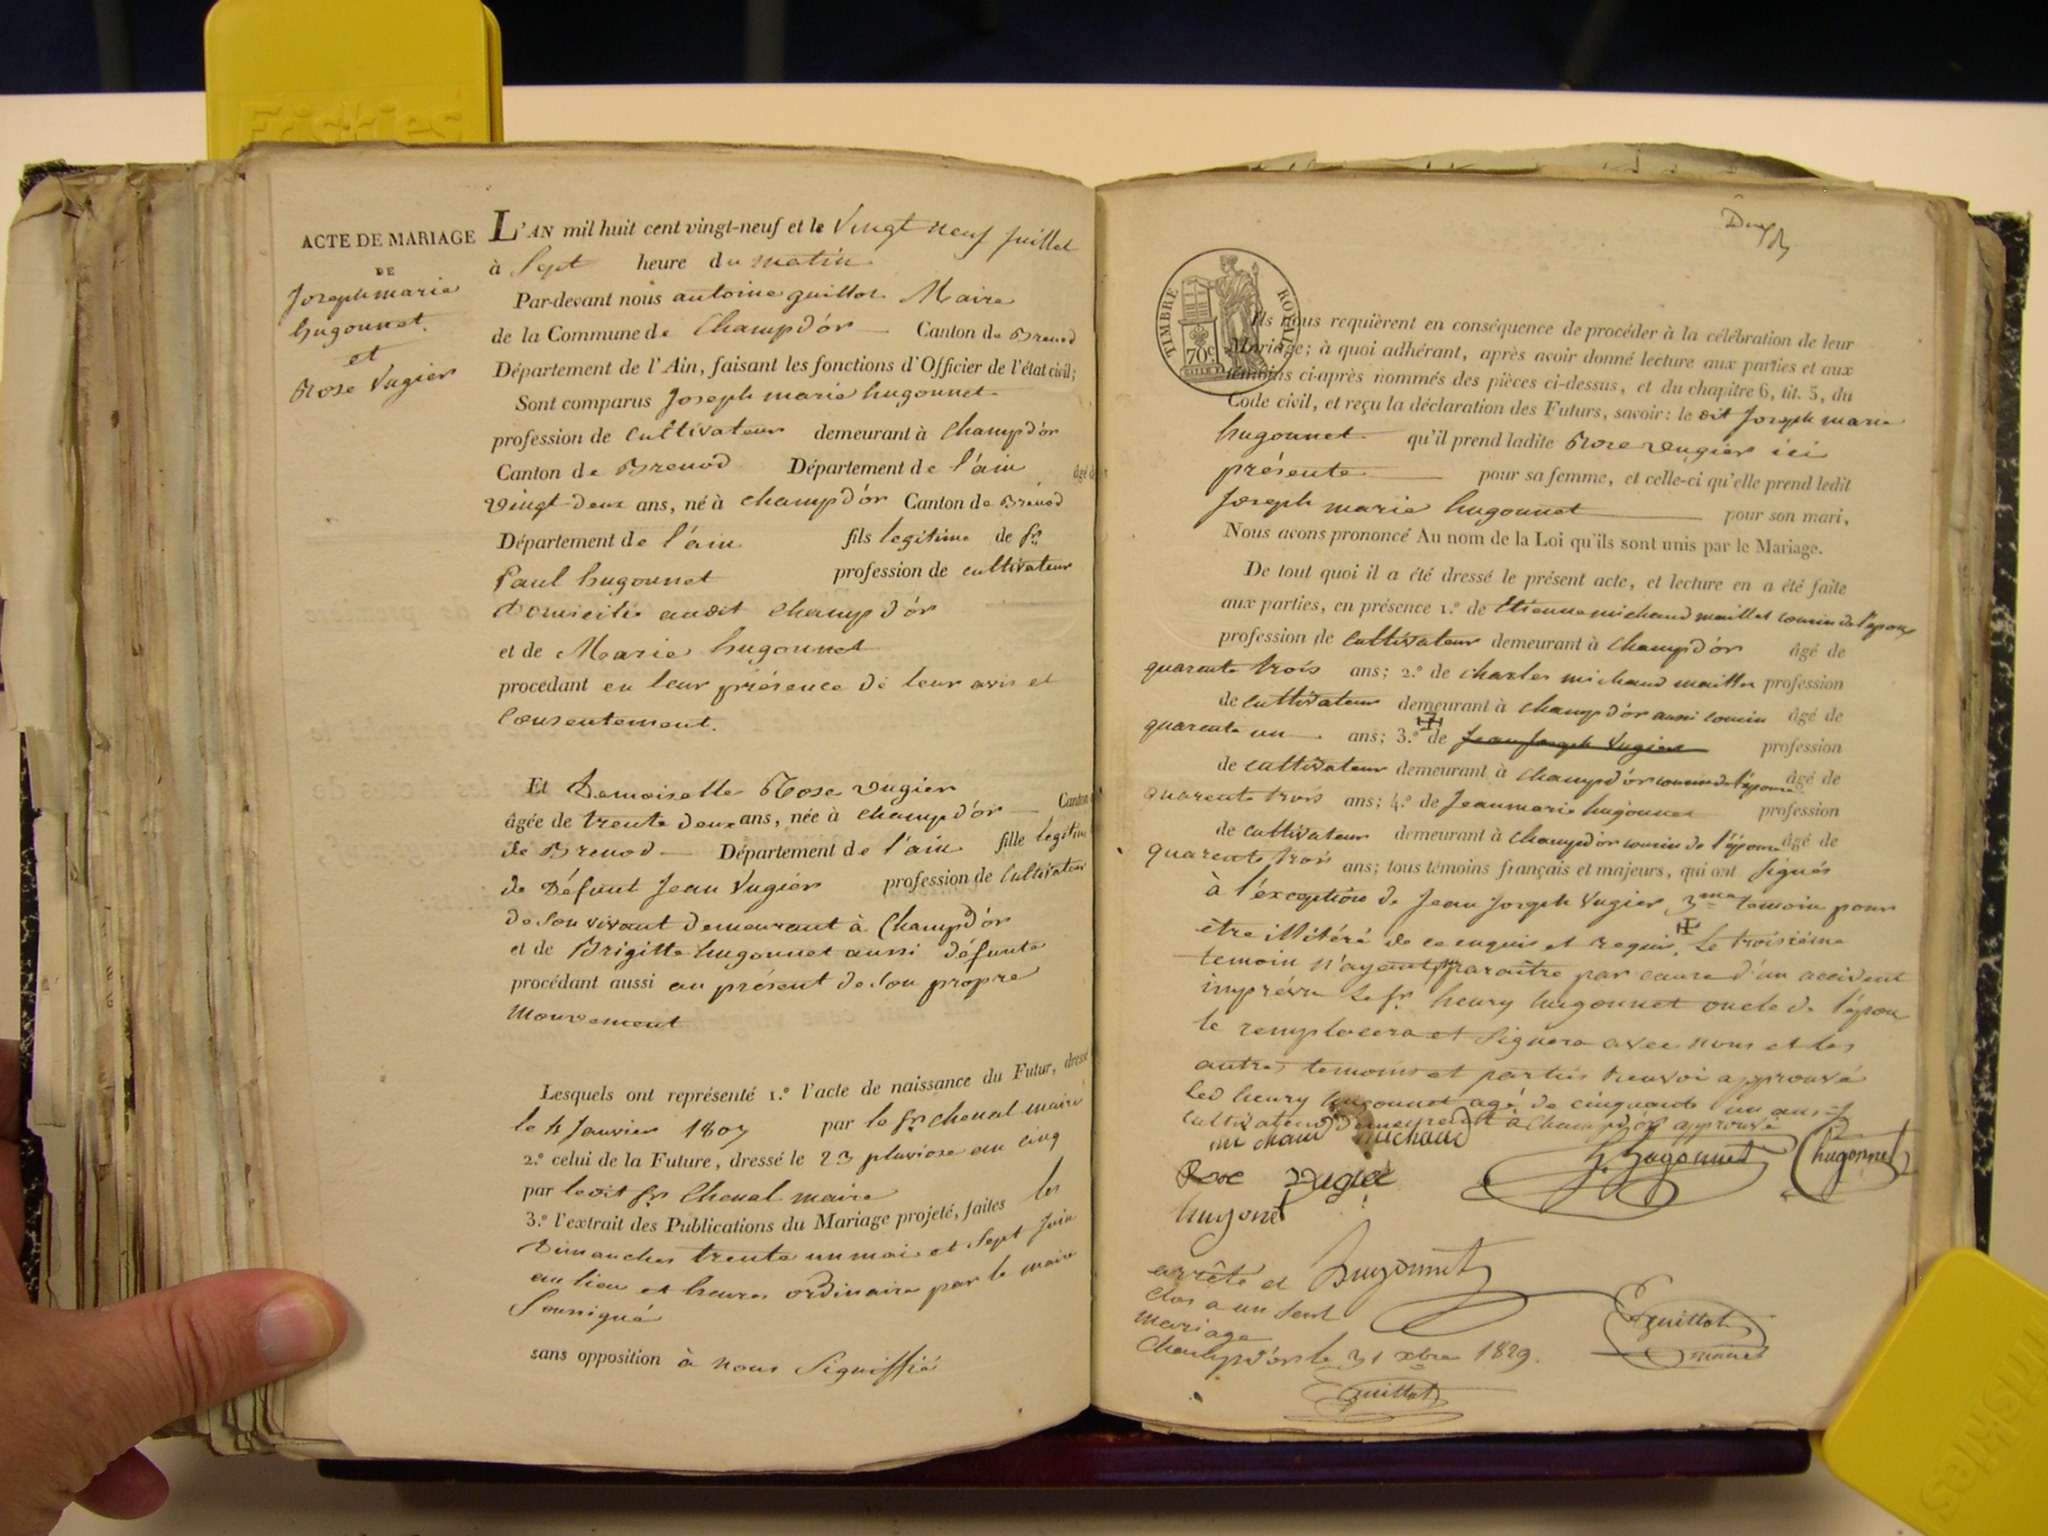 Friskies
ACTE DE MARIAGE
DE
Joseph marie
hugonnet
et
Rose Vugier
L'AN mil huit cent vingt-neuf et le Vingt neuf juillet
à Sept heure du matin
Par-devant nous antoine guillot Maire
de la Commune de Champd'or Canton de Brenod
Département de l'Ain, faisant les fonctions d'Officier de l'état civil;
Sont comparus Joseph marie hugonnet
profession de cultivateur demeurant à Champd'or
Canton de Brenod Département de l'ain âgé de
vingt-deux ans, né à champd'or Canton de Brenod
Département de l'ain fils legitime de Sr.
Paul hugonnet profession de cultivateur
Domicilié audit champd'or
et de Marie hugonnet
procédant en leur présence de leur avis et
Consentement.
Et Demoiselle Rose vugier
âgée de trente deux ans, née à champd'or Canton
de Brenod Département de l'ain fille legitime
de Défunt Jean Vugier profession de Cultivateur
de son vivant demeurant à Champd'or
et de Brigitte hugonnet aussi défunte
procédant aussi au présent de son propre
Mouvement
Lesquels ont représenté 1.º l'acte de naissance du Futur, dressé
le 4 Janvier 1807 par le Sr. Cheval maire
2.º celui de la Future, dressé le 23 pluviose an cinq
par ledit Sr. Cheval maire
3.º l'extrait des Publications du Mariage projeté, faites les
Dimanches trente un mai et Sept Juin
au lieu et heures ordinaire par le maire
Soussigné
sans opposition à nous Signiffié
TIMBRE ROYAL
70 c.
Ils nous requièrent en conséquence de procéder à la célébration de leur
Mariage; à quoi adhérant, après avoir donné lecture aux parties et aux
témoins ci-après nommés des pièces ci-dessus, et du chapitre 6, tit. 5, du
Code civil, et reçu la déclaration des Futurs, savoir: le dit Joseph marie
hugonnet qu'il prend ladite Rose vugier ici
présente pour sa femme, et celle-ci qu'elle prend ledit
Joseph marie hugonnet pour son mari,
Nous avons prononcé Au nom de la Loi qu'ils sont unis par le Mariage.
De tout quoi il a été dressé le présent acte, et lecture en a été faite
aux parties, en présence 1.º de Etienne michaud maillet cousin de l'époux
profession de Cultivateur demeurant à Champd'or âgé de
quarente trois ans; 2.º de charles michaud maillet profession
de cultivateur demeurant à champd'or aussi cousin âgé de
quarente un ans; 3.º de Jean Joseph Vugier profession
de cultivateur demeurant à champd'or cousin de l'épouse âgé de
quarente trois ans; 4.º de Jean marie hugonnet profession
de cultivateur demeurant à Champd'or cousin de l'épouse âgé de
quarente trois ans; tous témoins français et majeurs, qui ont signés
à l'exception de Jean Joseph Vugier 3me temoin pour
être illitéré de ce enquis et requis, Le troisième
temoin n'ayant paraître par cause d'un accident
imprévu le Sr. henry hugonnet oncle de l'époux
le remplacera et Signera avec nous et les
autres temoins et parties renvoi approuvé
led henry hugonnet agé de cinquante un ans
cultivateur demeurant à Champd'or approuvé
michaud michaud
Rose Vugier h hugonnet hugonnet
hugonet
arrêté et hugonnet
clos a un seul
mariage guillot
Champd'or le 31 xbre 1829. maire
guillot
Friskies